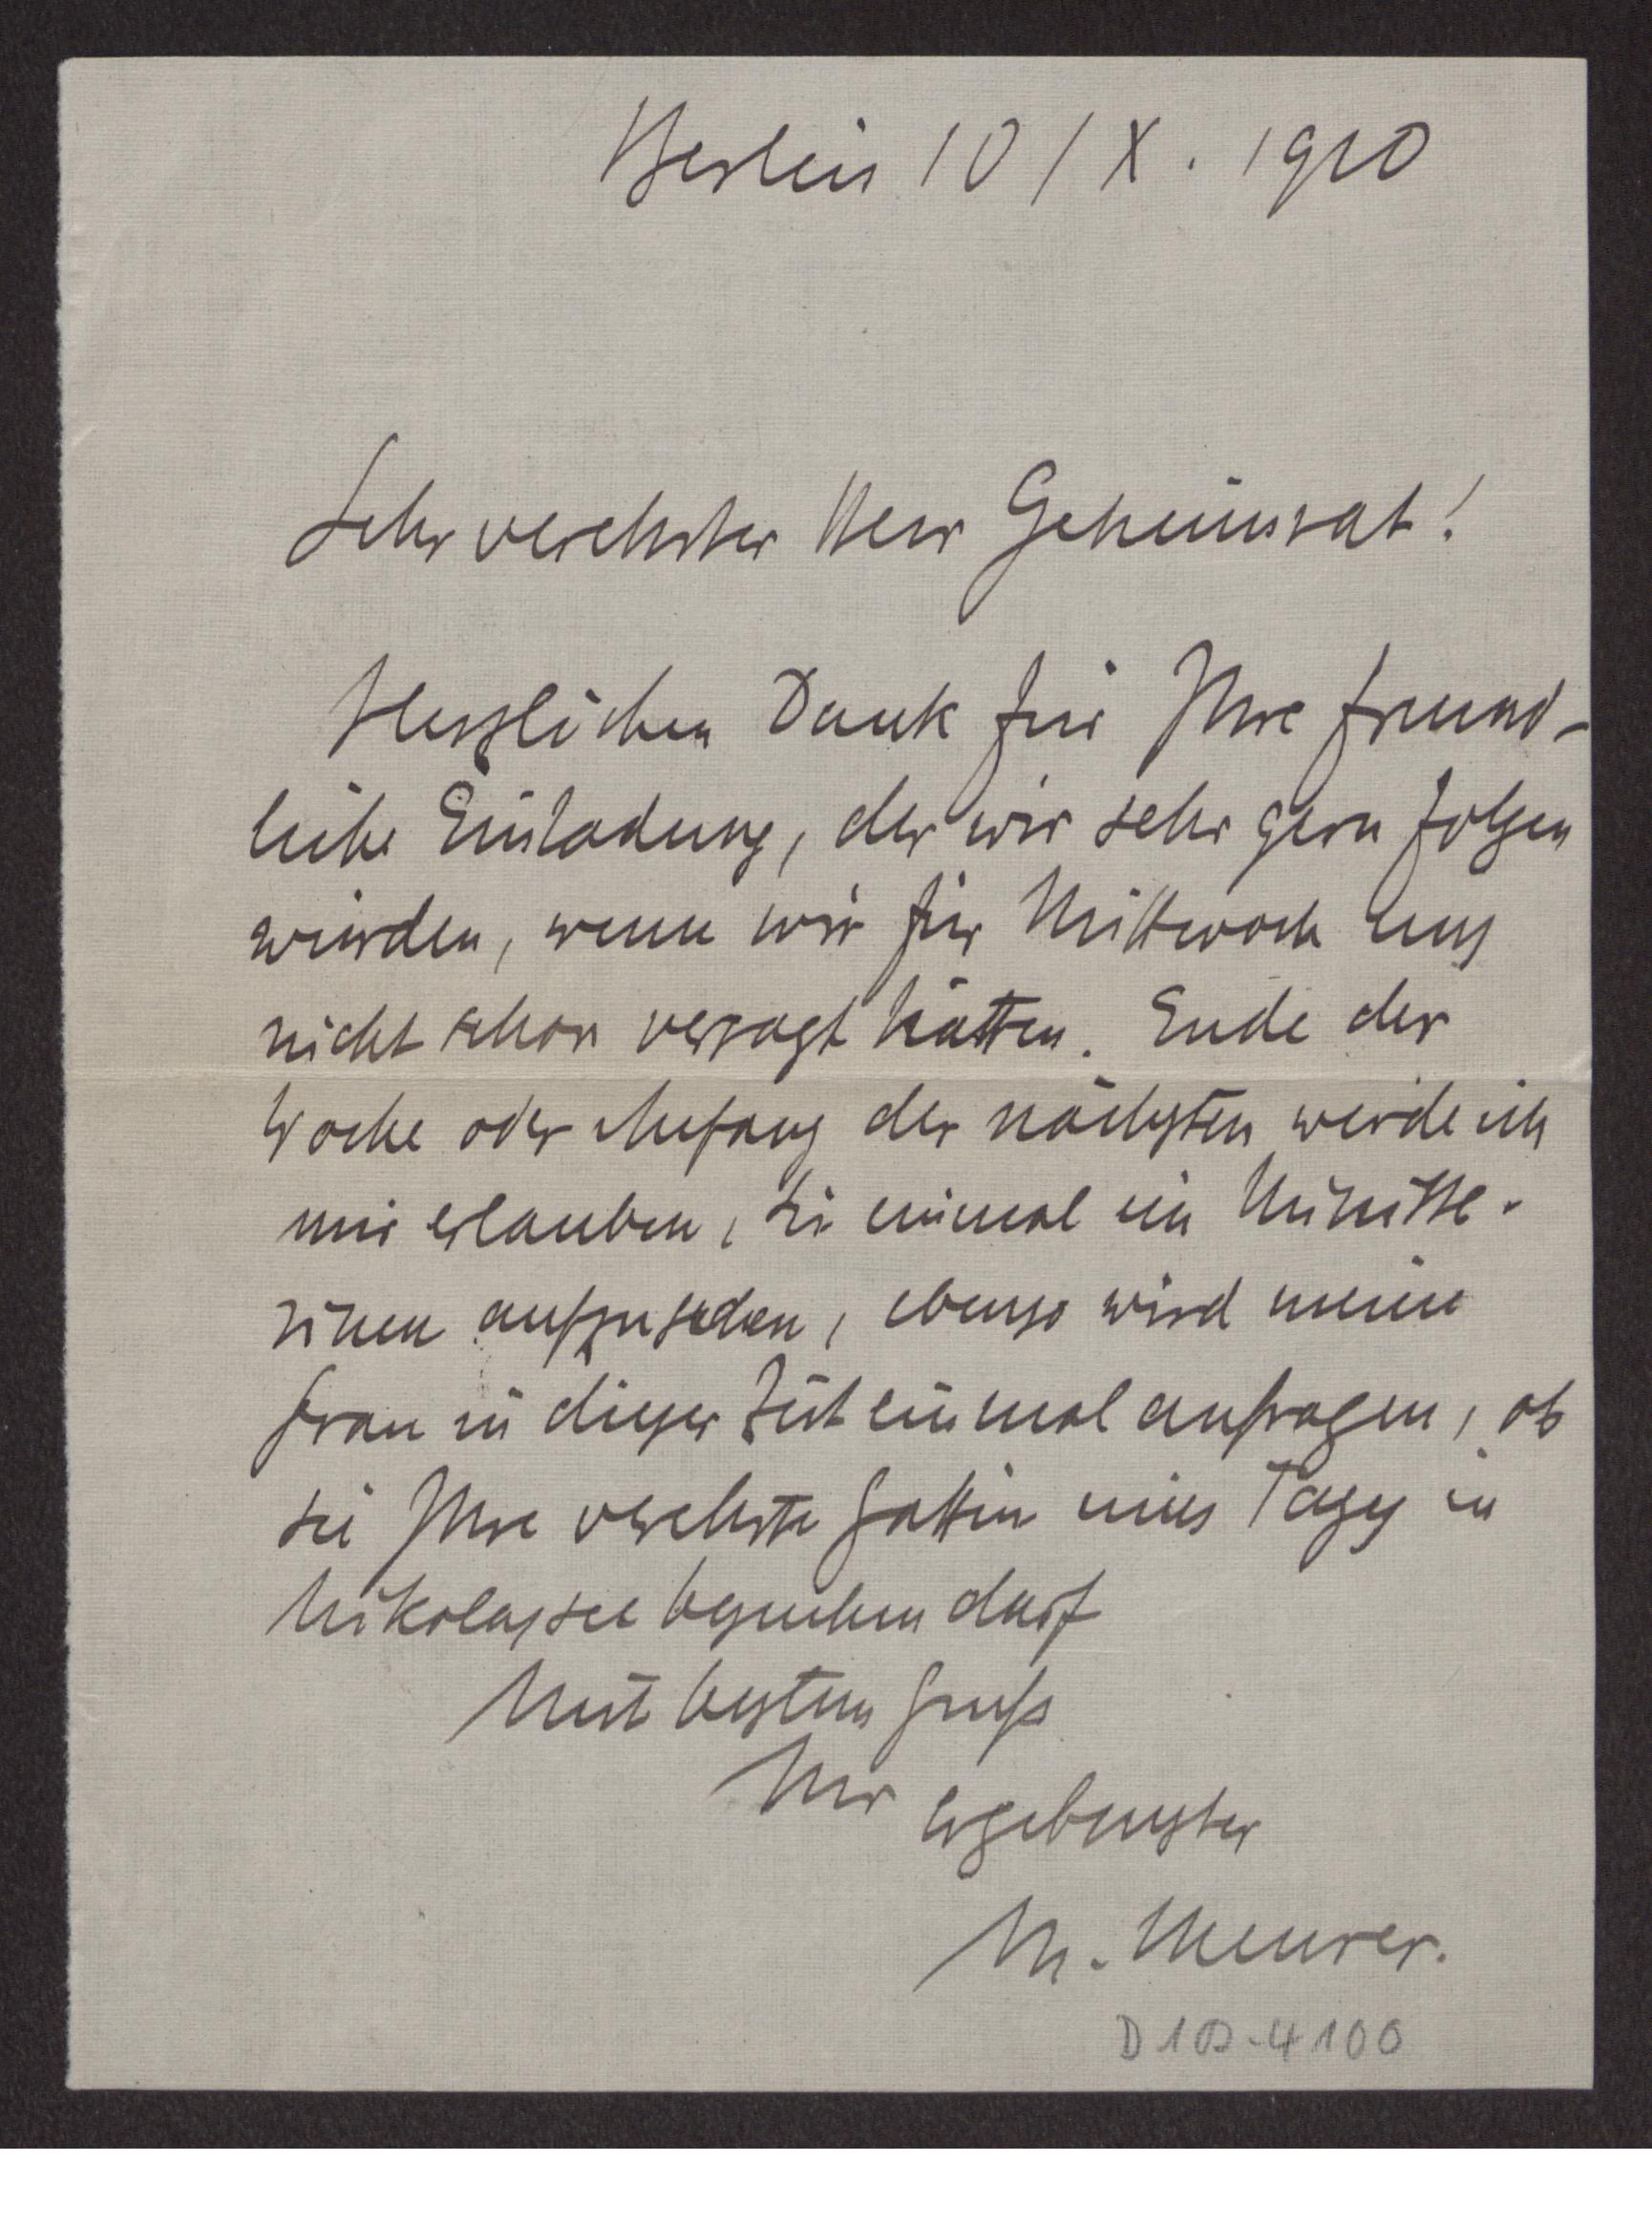 Berlin 10/X. 1910
Sehr verehrter Herr Geheimrat!
Herzlichen Dank für Ihre freund-
liche Einladung, der wir sehr gern folgen
würden, wenn wir für Mittwoch uns
nicht schon versagt hätten. Ende der
Woche oder Anfang der nächsten werde ich
mir erlauben, Sie einmal im Ministe-
rium aufzusuchen, ebenso wird meine
Frau in dieser Zeit einmal anfragen, ob
sie Ihre verehrte Gattin eines Tages in
Nikolassee besuchen darf
Mit bestem Gruß
Ihr ergebenster
M. Meurer.
D1D-4100